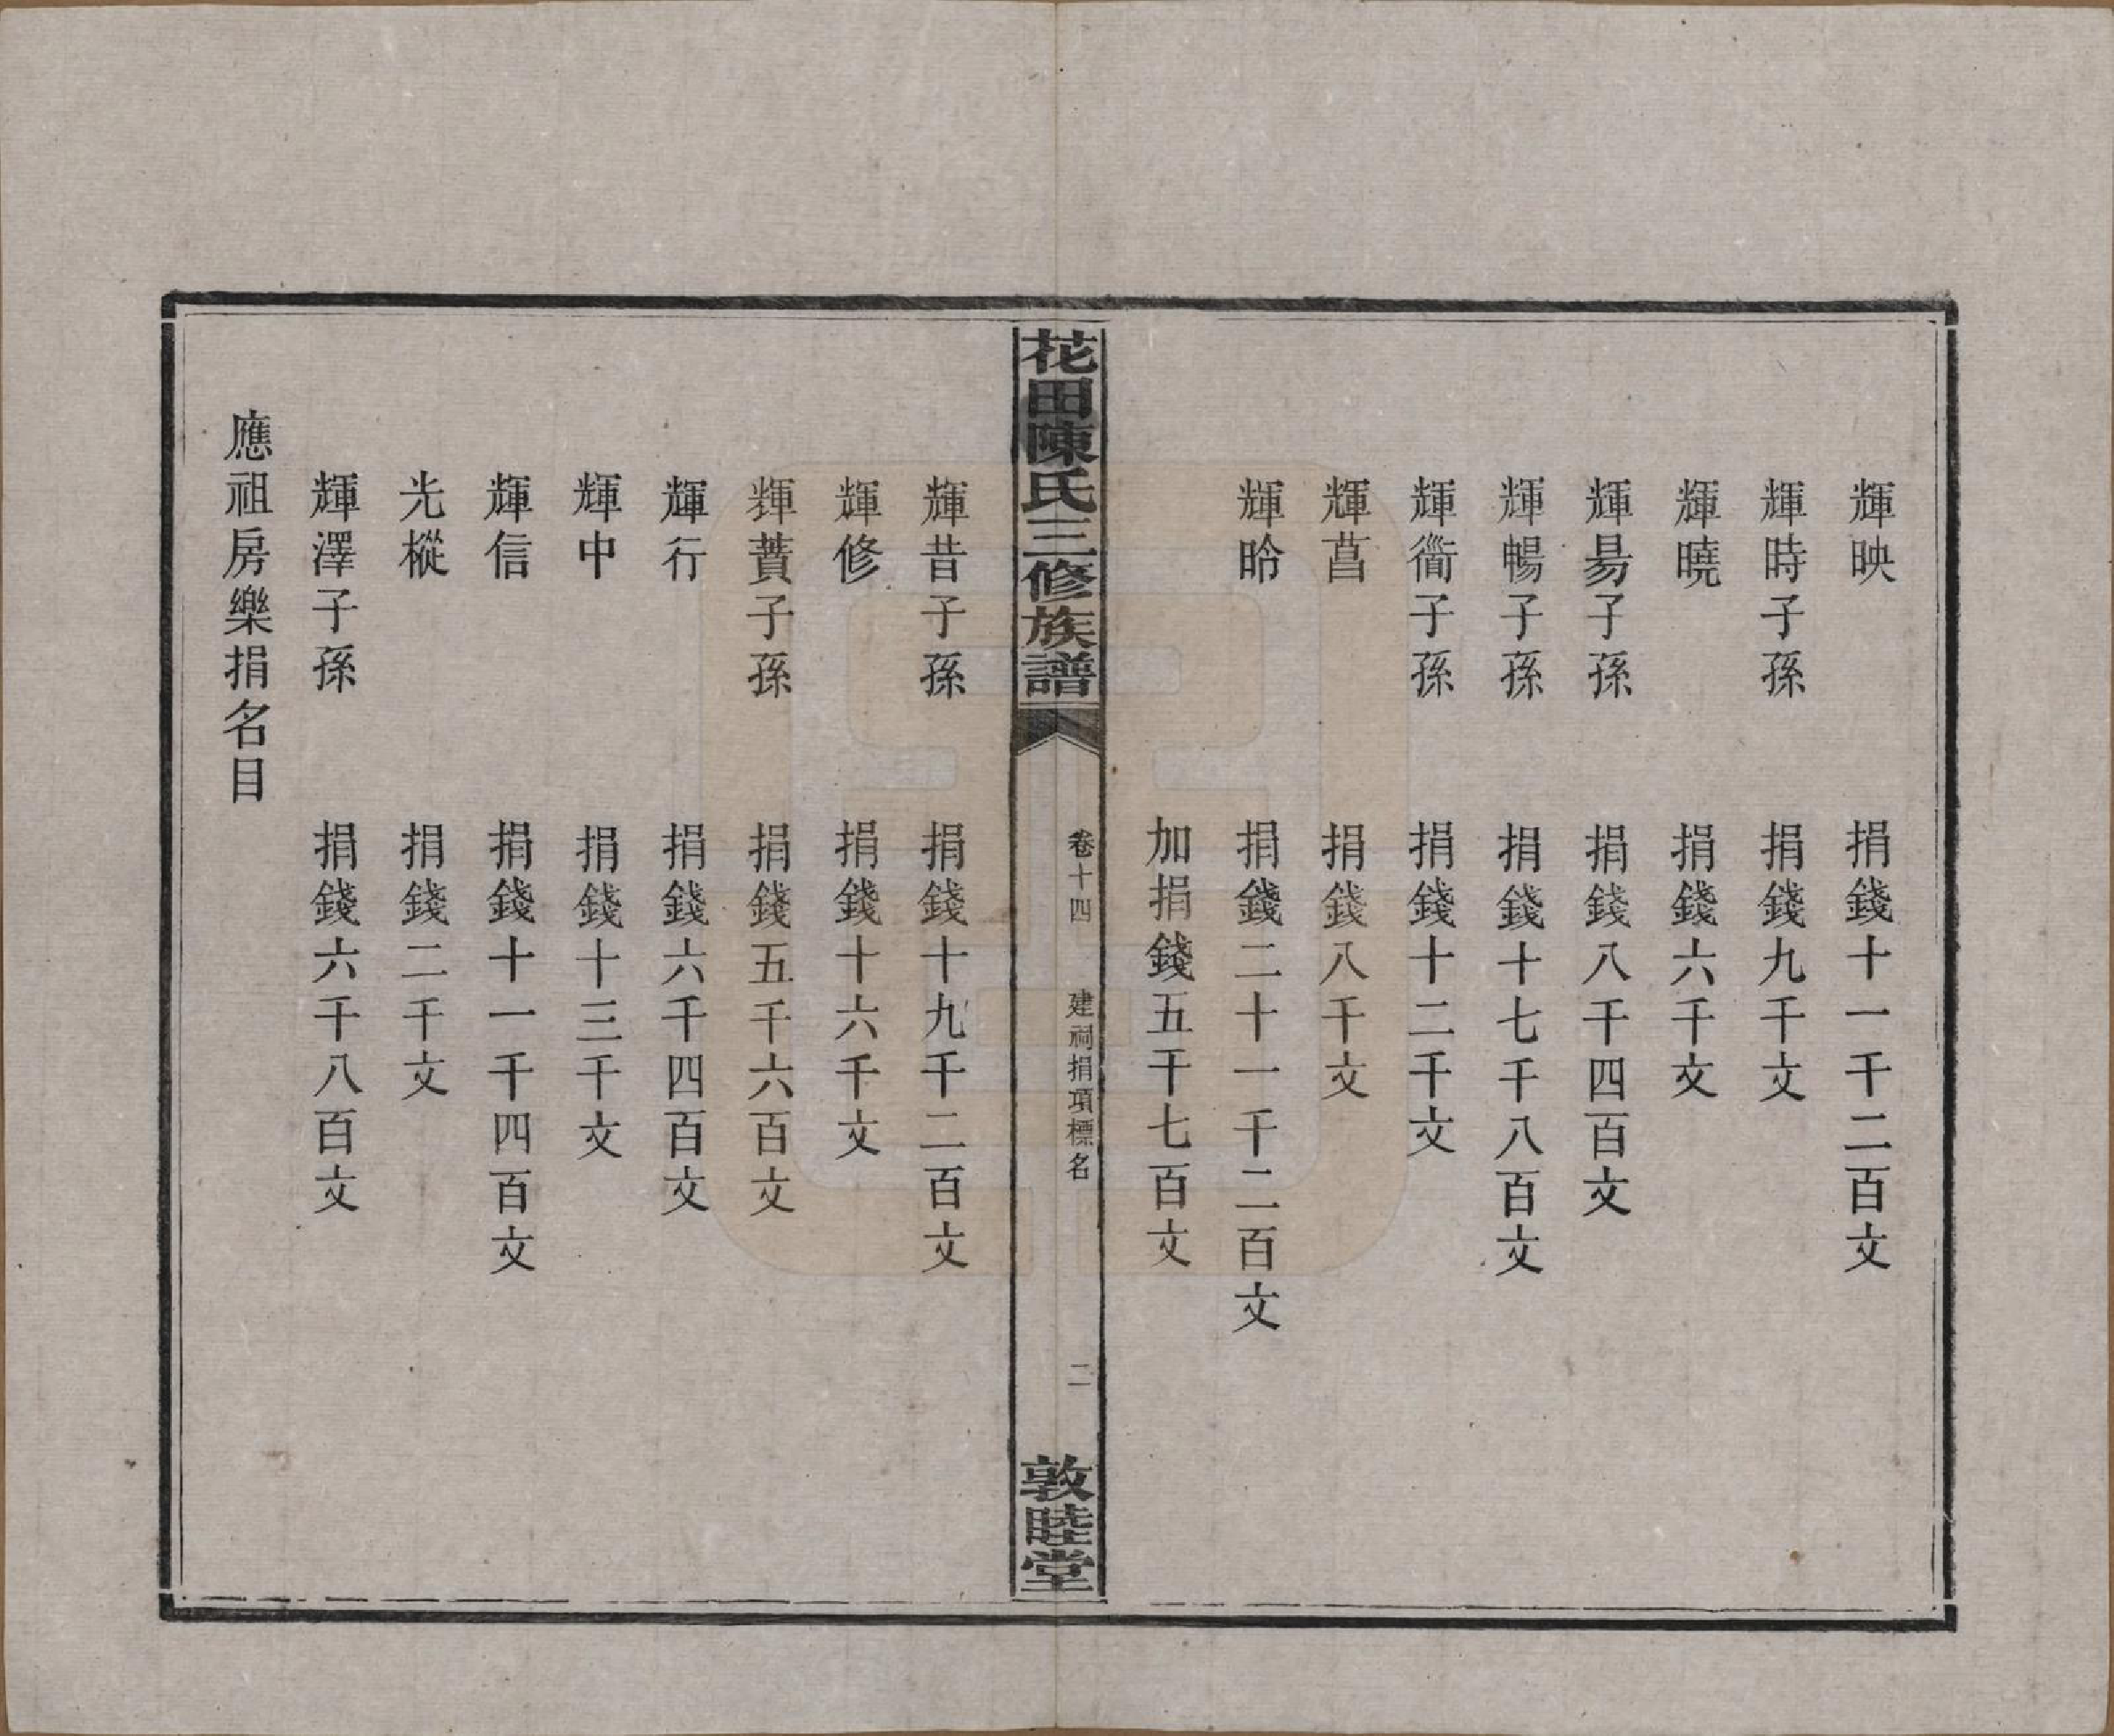 輝映　捐錢十一千二百文
輝時子孫　捐錢九千文
輝曉　捐錢六千文
輝昜子孫　捐錢八千四百文
輝暢子孫　捐錢十七千八百文
輝衜子孫　捐錢十二千文
輝菖　捐錢八千文
輝昤　捐錢二十一千二百文
加捐錢五千七百文
花田陳氏三修族譜　卷十四　建祠捐項標名　二　敦睦堂
輝昔子孫　捐錢十九千二百文
輝修　捐錢十六千文
輝蕢子孫　捐錢五千六百文
輝行　捐錢六千四百文
輝中　捐錢十三千文
輝信　捐錢十一千四百文
光樅　捐錢二千文
輝澤子孫　捐錢六千八百文
應祖房樂捐名目